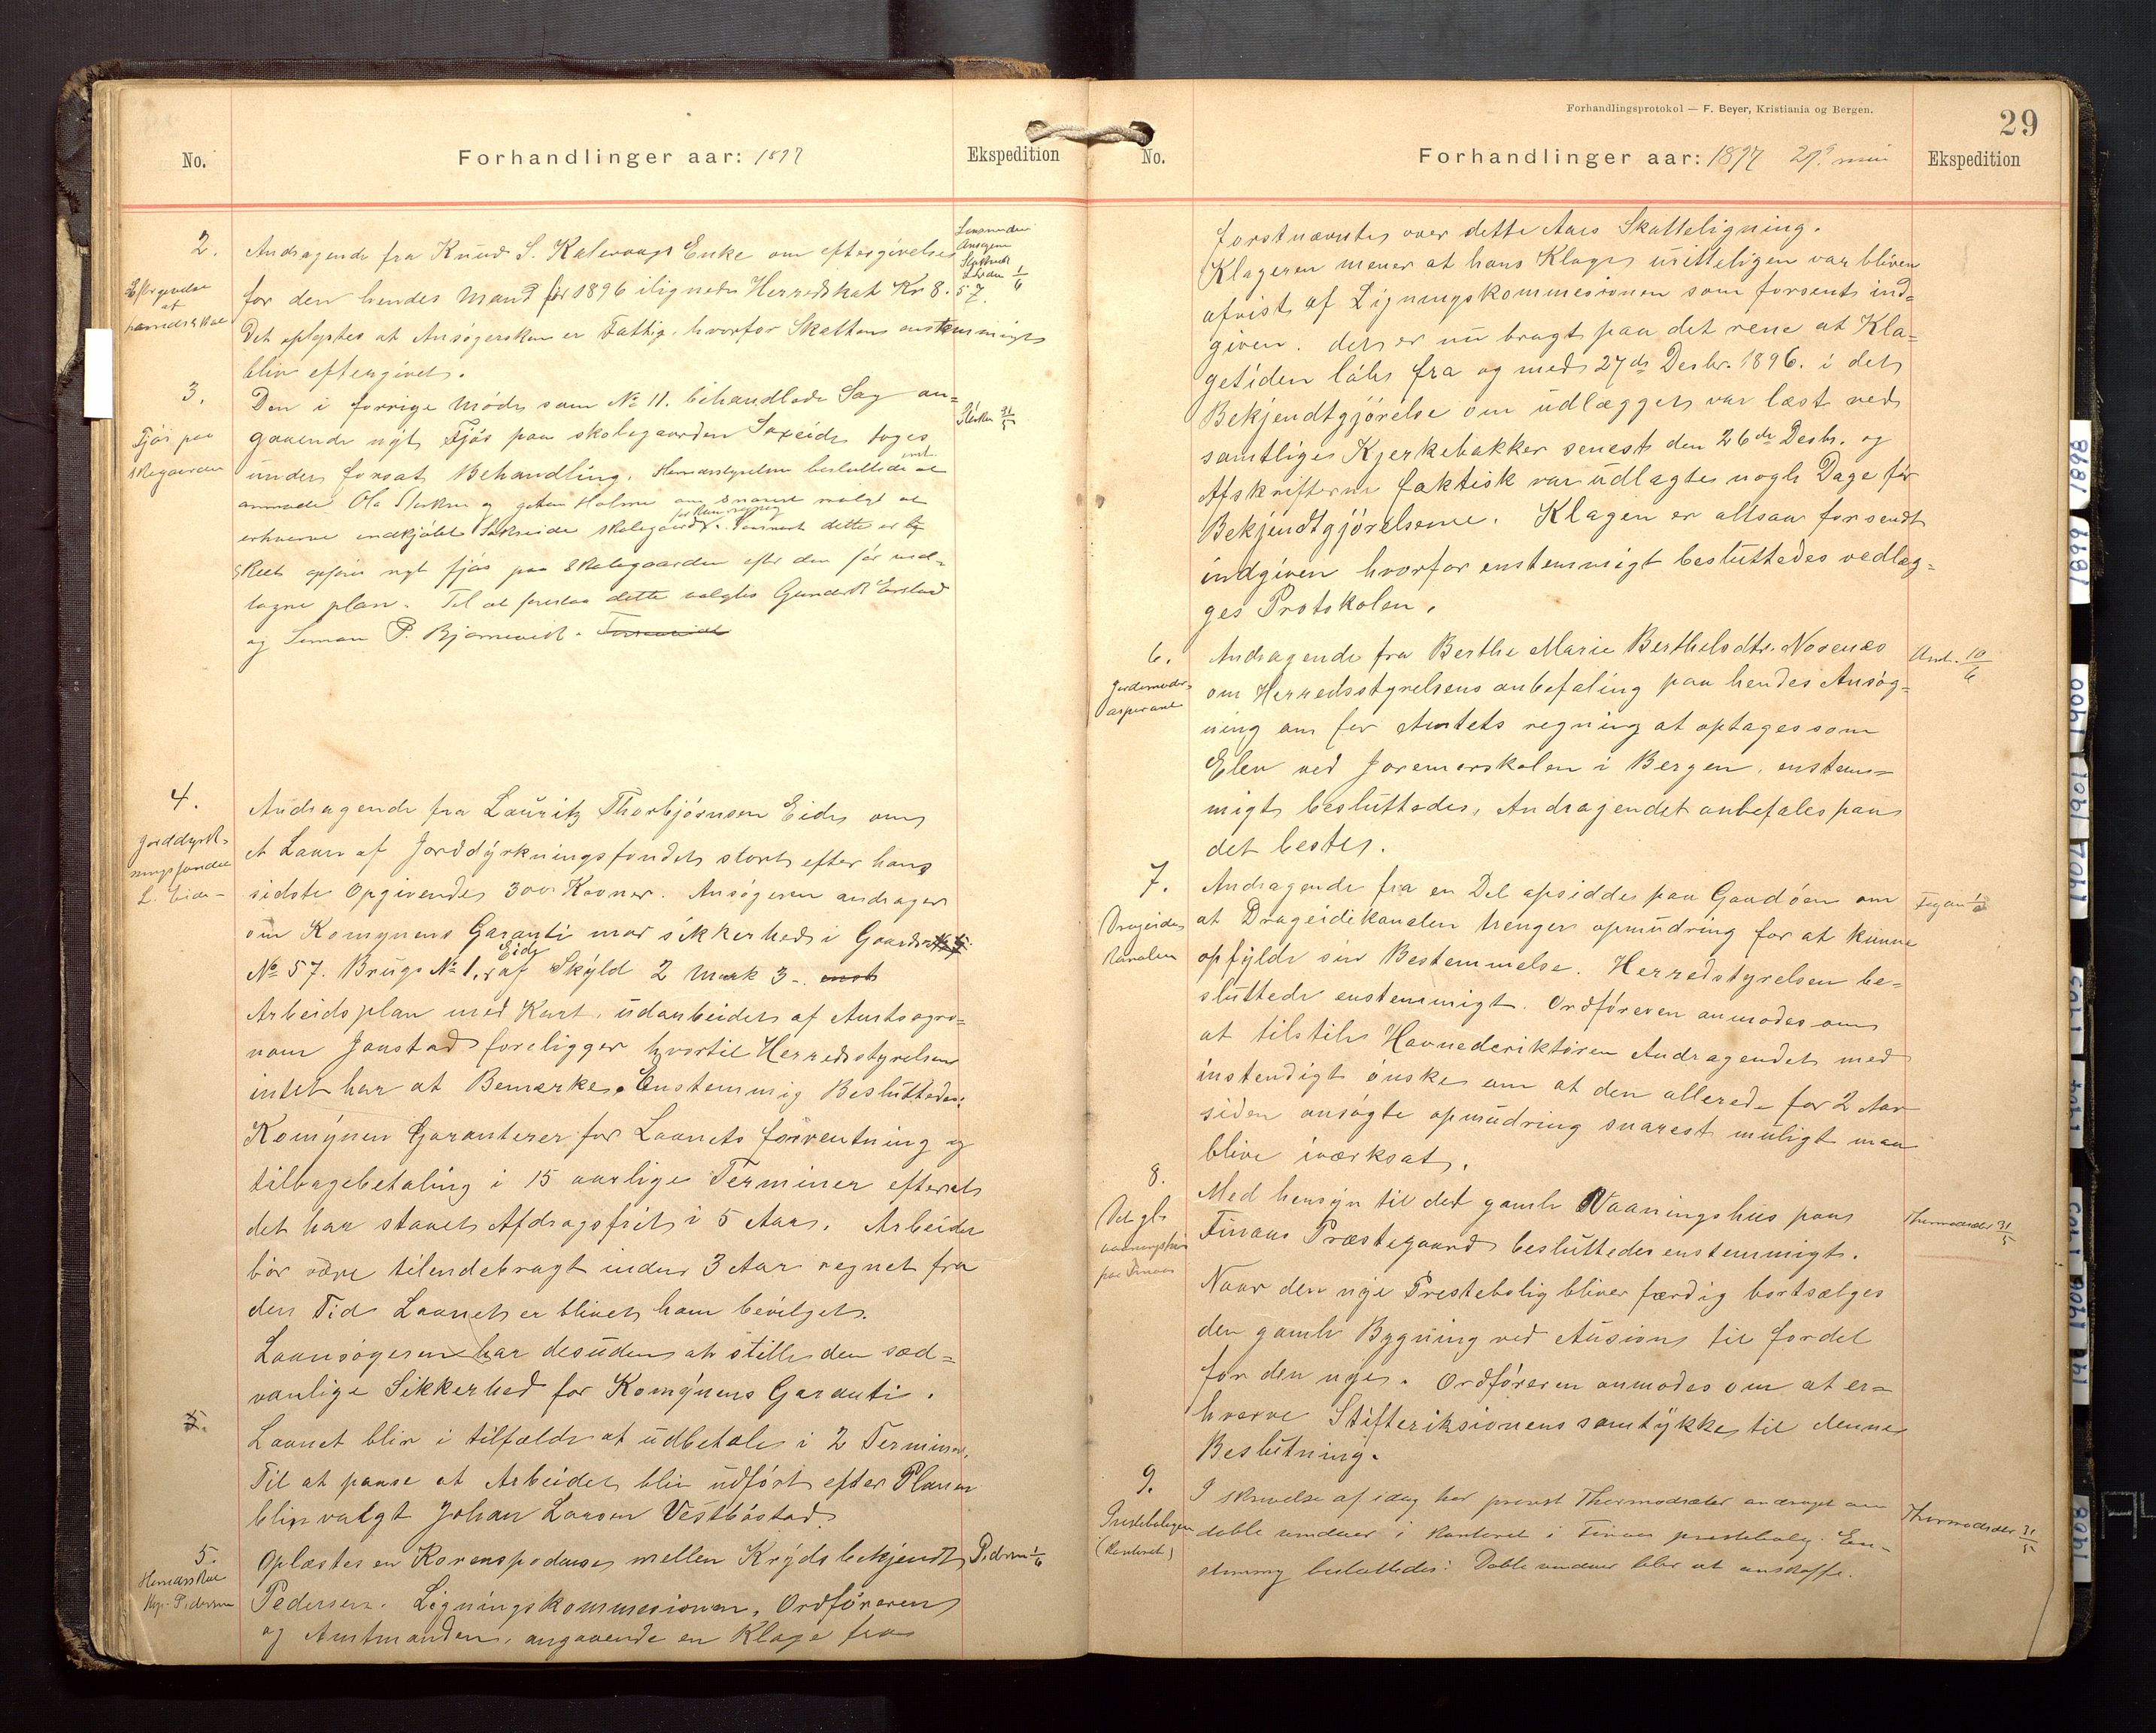 No.
Forhandlinger aar: 1897
Ekspedition
2.
Andragende fra Knud S. Kalevaags Enke om eftergivelse
for den hendes Mand for 1896 ilignede Herredskat Kr 8.57.
Det oplystes at Ansøgersken er Fattig, hvorfor Skatten enstemmigt
bliv eftergivet.
Eftergivelse
af
3.
Den i forrige Møde som No 11. behandlede Sag an-
gaaende nyt Fjøs paa skolegaarden Saxeide toges
under forsat Behandling. Herredsstyrelsen besluttede at
anmode Ola Støkken og Holme om snarest muligt at
erhverve indkjøbt Sakseide skolegaard. Snarest dette er
skeet opføres nyt fjøs paa Skolegaarden efter den før ved-
tagne plan. Til at forestaa dette valgtes Gunder Erstad
og Simon P. Bjørnevik.
Fjøs paa
skolegaarden
Støkken 31/5
4.
Andragende fra Lauritz Thorbjørnsen Eide om
et Laan af Jorddyrkningsfondet stort efter hans
sidste Opgivende 300 Kroner. Ansøgeren andrager
om Komunens Garanti mod sikkerhed i Gaards
No 57. Brugs No 1, Eide af Skyld 2 Mark 3-.
Arbeidsplan med Kart, udarbeidet af Amtsagro-
nom Jonstad foreligger hvortil Herredsstyrelsen
intet har at Bemerke. Enstemmig Besluttedes:
Komunen Garanterer for Laanets forrentning og
tilbagebetaling i 15 aarlige Terminer efterat
det har staaet Afdragsfrit i 5 Aar. Arbeidet
bør være tilendebragt inden 3 Aar regnet fra
den Tid Laanet er blivet ham bevilget.
Laansøgeren har desuden at stille den sæd-
vanlige Sikkerhed for Komunens Garanti.
Laanet bliv i tilfælde at udbetale i 2 Terminer.
Til at paase at Arbeidet bliv udført efter Planen
bliv valgt Johan Larsen Vestbøstad.
Jorddyrk-
ningsfondet
L. Eide-
5.
5.
Oplæstes en Korenspodense mellem Krÿdsbekjendt
Pedersen. Ligningskommesionen, Ordføreren
og Amtmanden, angaaende en Klage fra
Herredsskat
Pedersen
Pedersen 1/6
Forhandlingsprotokol — F. Beyer, Kristiania og Bergen.
29
No.
Forhandlinger aar: 1897 29de mai
Ekspedition
forstnævnte over dette Aars Skatteligning.
Klageren mener at hans Klage uritteligen var bliven
afvist af Ligningskommesionen som forsent ind-
given. det er nu bragt paa det rene at Kla-
getiden løber fra og med 27de Desbr. 1896. i det
Bekjendtgjørelse om udlægget var læst ved
samtlige Kjerkebakker senest den 26de Desbr. og
Afskrifterne faktisk var udlagte nogle Dage før
Bekjendtgjørelserne. Klagen er altsaa forsendt
indgiven hvorfor enstemmigt besluttedes vedlæg-
ges Protokolen.
6.
Andragende fra Berthe Marie Berthelsdtr. Nosenæs
om Herredsstyrelsens anbefaling paa hendes Ansøg-
ning om for Amtets regning at optages som
Elev ved Joremorskolen i Bergen, enstem-
migt besluttedes, Andragendet anbefales paa
det beste.
Jordemoder-
asperant
And. 10/6
7.
Andragende fra en Del opsidder paa Gaudøen om
at Drageidekanalen trenger opmudring for at kunne
opfylde sin Bestemmelse. Herredstyrelsen be-
sluttede enstemmigt. Ordføreren anmodes om
at tilstile Havnederiktøren Andragendet med
instendigt ønske om at den allerede for 2 Aar
siden ansøgte opmudring snarest muligt maa
blive iværksat.
Drageides
kanalen
8.
Med hensyn til det gamle Vaaningshus paa
Finaas Præstegaard besluttedes enstemmigt.
Naar den nye Prestebolig bliver færdig bortsælges
den gamle Bygning ved Ausion til fordel
for den nye. Ordføreren anmodes om at er-
hverve Stifteriksionens samtykke til denne
Beslutning.
Det gle
vaaningshus
paa Finaas
Thormodsæter 31/5
9.
I skrivelse af idag har provst Thormodsæter andraget om
doble vinduer i kontoret i Finaas prestebolig. En-
stemmig besluttedes: Doble vinduer blir at anskaffe.
Prestebolegen
(kontoret)
Thormodsæter 31/5
1898
1899
1900
1901
1902
1908